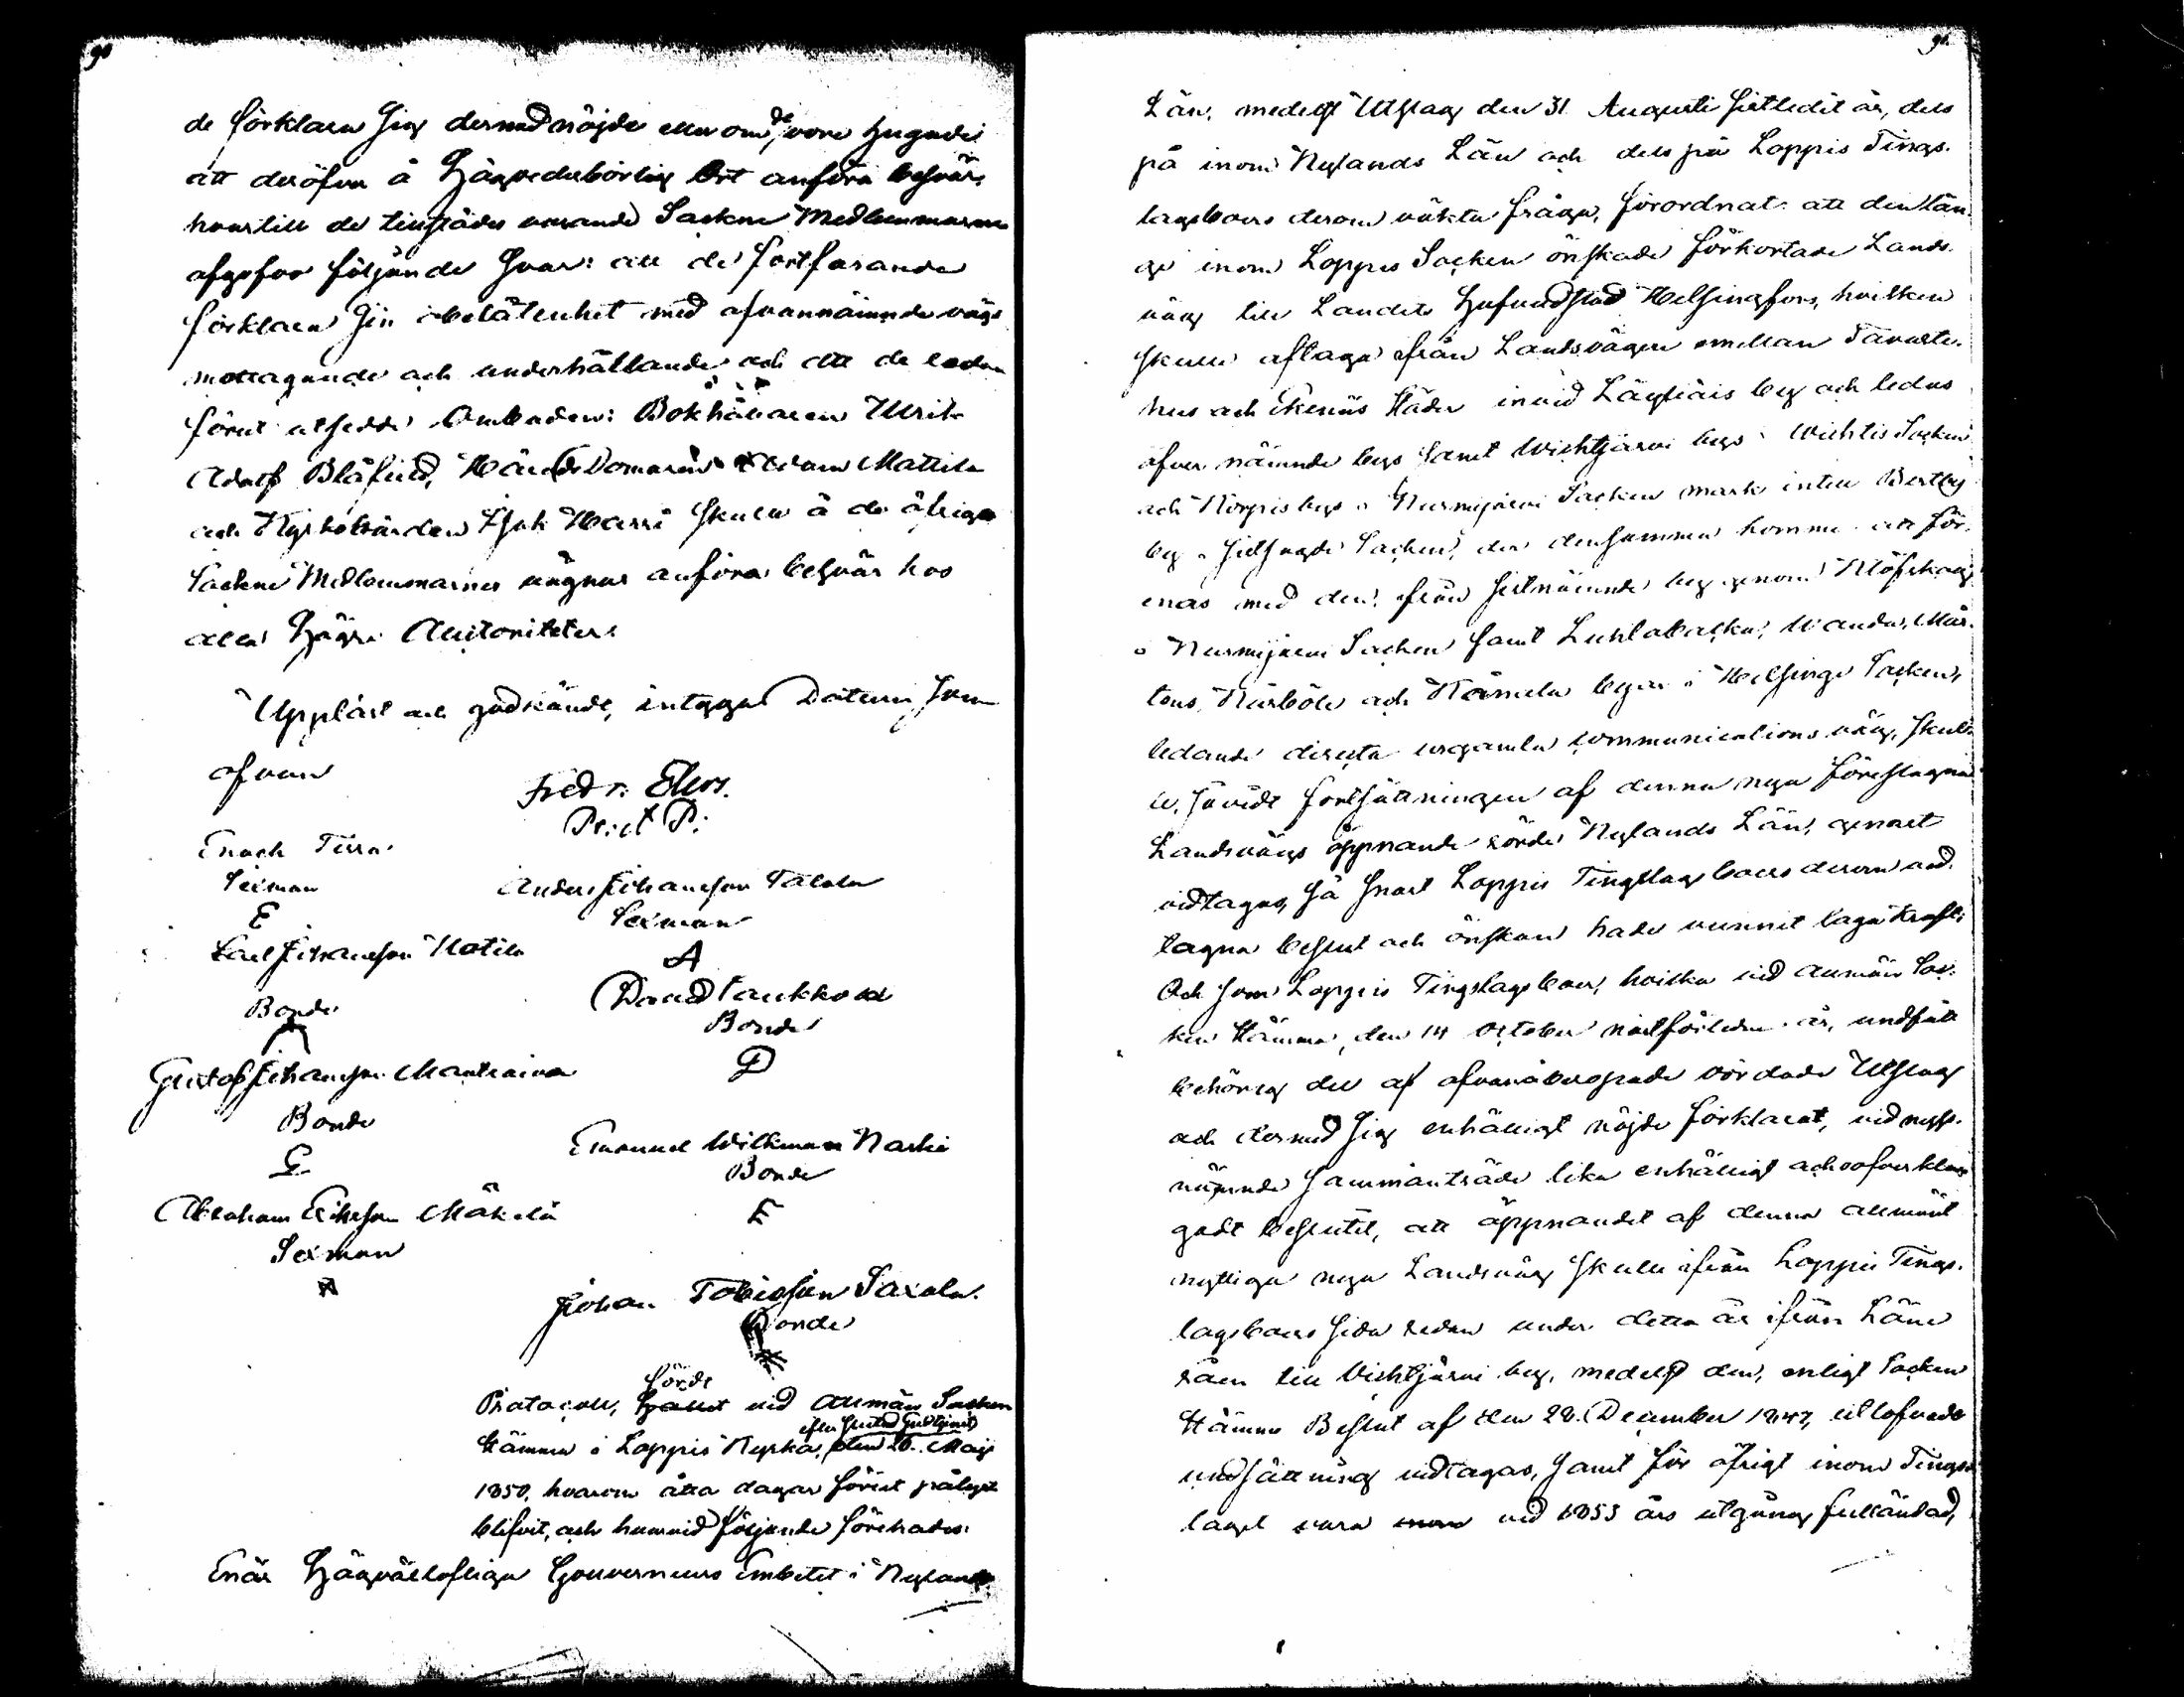 90
de förklara sig dermed nöjde eller om de vore hugade
att deröfver å Högvederbörlig Ort anföra besvär,
hvartill de tillstädes varande Sockne Medlemmarne
afgofvo följande svar: att de fortfarande
förklara sin obelåtenhet med ofvannämnde vägs
mottagande och underhållande och att de redan
förut utsedde Ombuden: Bokhållaren Ulrik
Adolf Blåfield, Härads Domaren Adam Mattila
och Kyrkovärden Isak Harri skulle å de öfrige
Sockne Medlemmarnes vägnar anföra besvär hos
alla Högre Auctoriteter.
Uppläst och godkändt, intygar Datum som
ofvan
Fredr. Elers.
P:
Enoch Tirra
Sexman
E
Anders Johansson Talola
Sexman
A
Carl Johansson Mattila
Bonde
David
Bonde
D
Gustaf Johansson
Bonde
G
Emanuel Wilkman
Bonde
E
Abraham Eriksson Mäkelä
Sexman
A
Johan Tobiasson Saxala.
Bonde
Protocoll, fördt vid Allmän Socken
Stämma i Loppis Kyrka, efter slutad Gudstjenst den 26. Maji
1850, hvarom åtta dagar förut pålyst
blifvit, och hvarvid följande förehades:
Enär Högvällofliga Gouverneurs Embetet i Nylands
91.
Län, medelst Utslag den 31 Augusti sistledit år, dels
på inom Nylands Län och dels på Loppis Tings-
lagsboers derom väkta fråga, förordnat att den län-
ge inom Loppis Socken önskade förkortade Lands-
väg till Landets hufvudstad Helsingfors, hvilken
skulle aftaga från Landsvägen emellan Tavaste-
hus och Ekenäs Städer invid Läyliäis by och ledas
öfver nämnde bys samt Wichtijärvi bys i Wichtis Socken
och Korpis bys i Nurmijärvi Socken mark intill
by i sistsagde Socken, der densamma komme att för-
enas med den, från sistnämnde by genom Klöfskog
i Nurmijärvi Socken samt Luhtabacka, Wanda, Mår-
tens, och Hämela byar i Helsinge Socken,
ledande directa urgamla communications väg, skul-
le, såvidt fortsättningen af denna nya föreslagna
Landsvägs öppnande rörde Nylands Län, genast
vidtagas, så snart Loppis Tingslags boers derom
tagna beslut och önskan hade vunnit laga kraft;
Och som Loppis Tingslags boer, hvilka vid allmän Soc-
ken Stämma, den 14 October nästförledne år, undfått
behörig del af ofvanåberopade vördade Utslag
och dermed sig enhälligt nöjde förklarat, vid nyss-
nämnde sammanträde lika enhälligt och oöfverklan-
gadt beslutit, att öppnandet af denna allmänt
nyttiga nya Landsväg skulle ifrån Loppis Tings-
lagsboers sida redan under detta år ifrån Läne
råen till Vichtijärvi by, medelst den, enligt Socken
Stämma Beslut af den 28. December 1847, utlofvade
undsättning vidtagas, samt för öfrigt inom Tings-
laget vara vid 1853 års utgång fulländad,